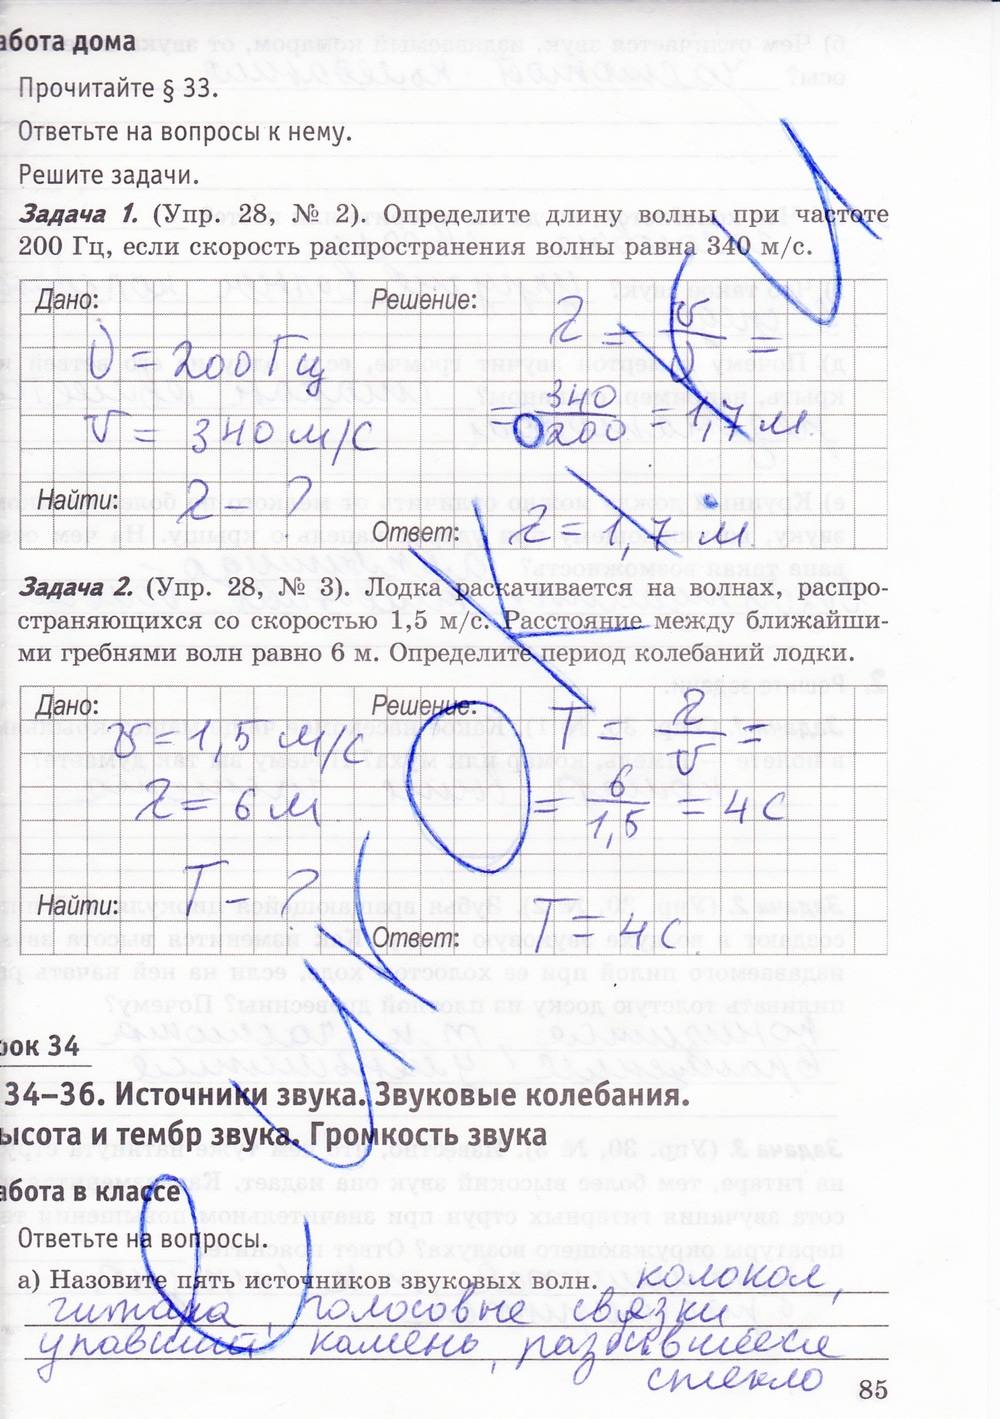 абота дома
Прочитайте § 33.
Ответьте на вопросы к нему.
Решите задачи.
Задача 1. (Упр. 28, № 2). Определите длину волны при частоте
200 Гц, если скорость распространения волны равна 340 м/с.
Дано:
Решение:
λ = v/ν =
ν = 200 Гц
v = 340 м/с
= 340/200 = 1,7 м
Найти:
λ - ?
Ответ:
λ = 1,7 м.
Задача 2. (Упр. 28, № 3). Лодка раскачивается на волнах, распро-
страняющихся со скоростью 1,5 м/с. Расстояние между ближайши-
ми гребнями волн равно 6 м. Определите период колебаний лодки.
Дано:
Решение:
T = λ/v =
v = 1,5 м/с
λ = 6 м
= 6/1,5 = 4 с
Найти:
T - ?
Ответ:
T = 4 с
рок 34
34–36. Источники звука. Звуковые колебания.
ысота и тембр звука. Громкость звука
абота в классе
Ответьте на вопросы.
а) Назовите пять источников звуковых волн. колокол,
гитара, голосовые связки
упавший камень, разбившееся
стекло
85